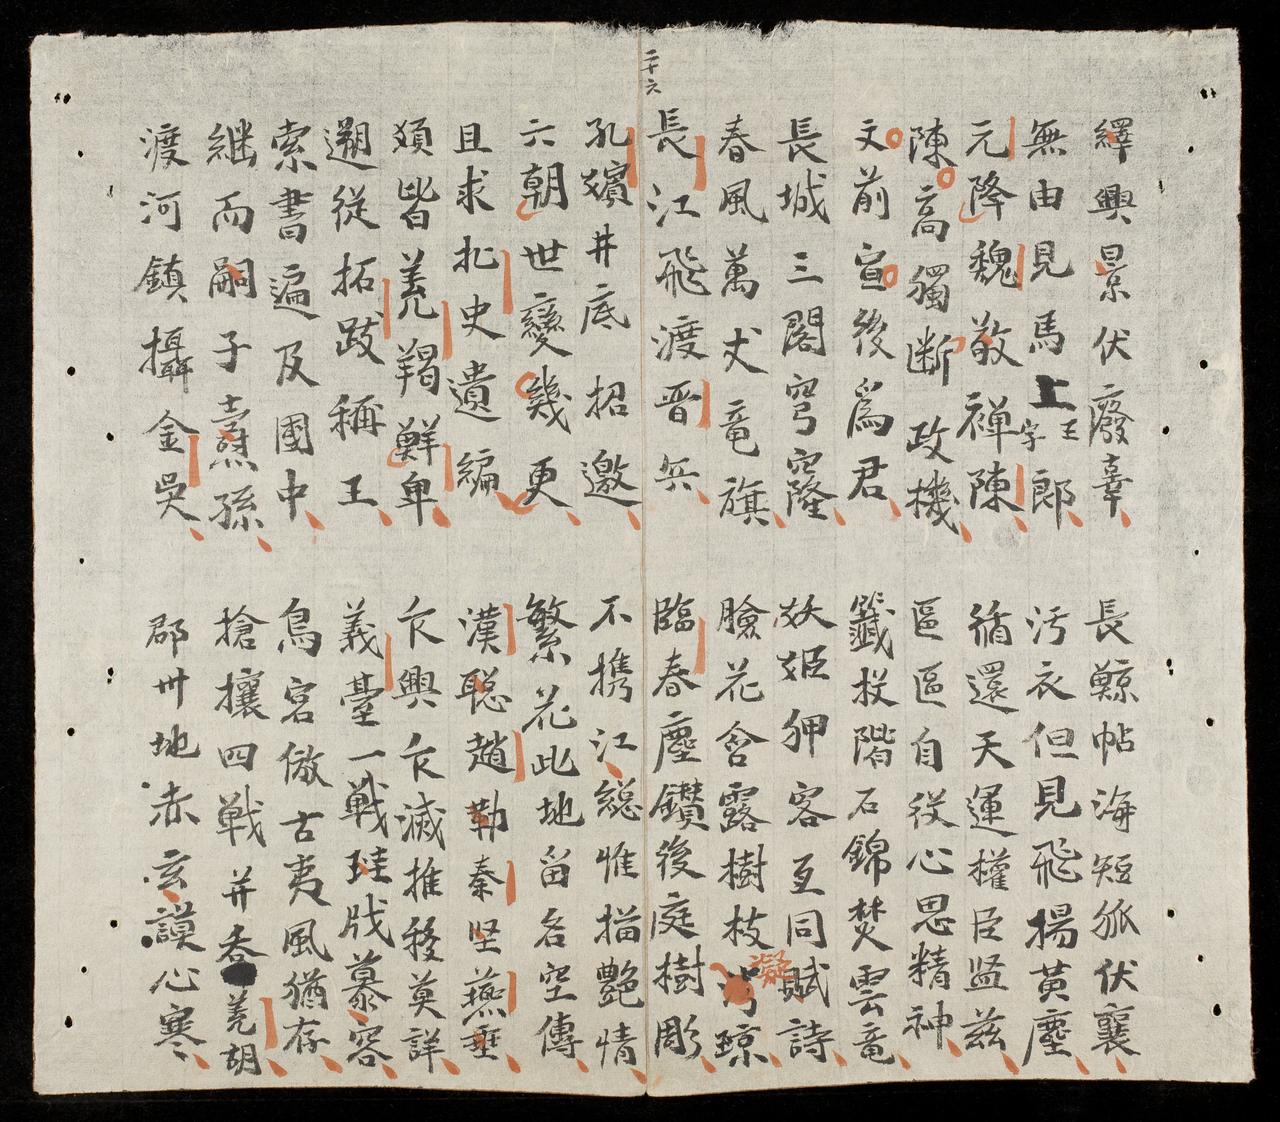 二十六
繹興景伏廢辜
長鯨帖海短狐伏襄
無由見馬上郎
王字
污衣但見飛揚黃塵
元降魏敬禪陳
循還天運權臣盗茲
陳高獨断政機
區區自役心思精神
文前宣後爲君
籤投階石錦焚雲竜
長城三閣穹窿
妖姬狎客互同賦詩
春風萬丈竜旗
臉花含露樹枝凝瓊
長江飛渡晋兵
臨春塵鑽後庭樹彫
孔嬪井底招邀
不携江総惟描艶情
六朝世變幾更
繁花此地留名空傳
且求北史遺編
漢聡趙勒秦坚燕垂
皆羌羯鮮卑
仄興仄滅推移莫詳
遡從拓跋稱王
義臺一戦珪戕慕容
索書遍及國中
鳥官倣古夷風猶存
継而嗣子燾孫
搶攘四戦并吞羌胡
渡河鎮攝金吳
郡卅地赤玄謨心寒